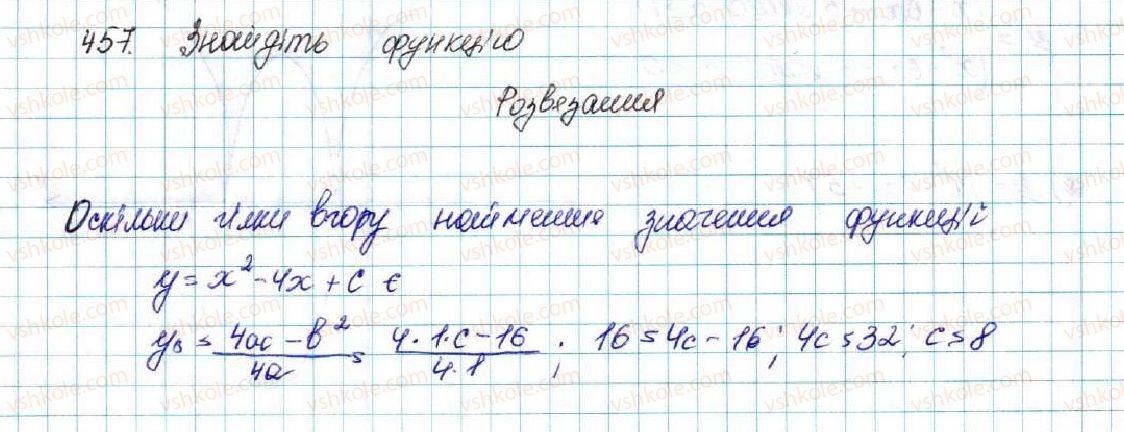 457. Знайдіть функцію
Розвязання
Оскільки гілки вгору найменше значення функції
y = x² - 4x + c є
yв = (4ac - b²)/(4a) = (4·1·c - 16)/(4·1) ; 16 = 4c - 16; 4c = 32; c = 8
vshkole.com